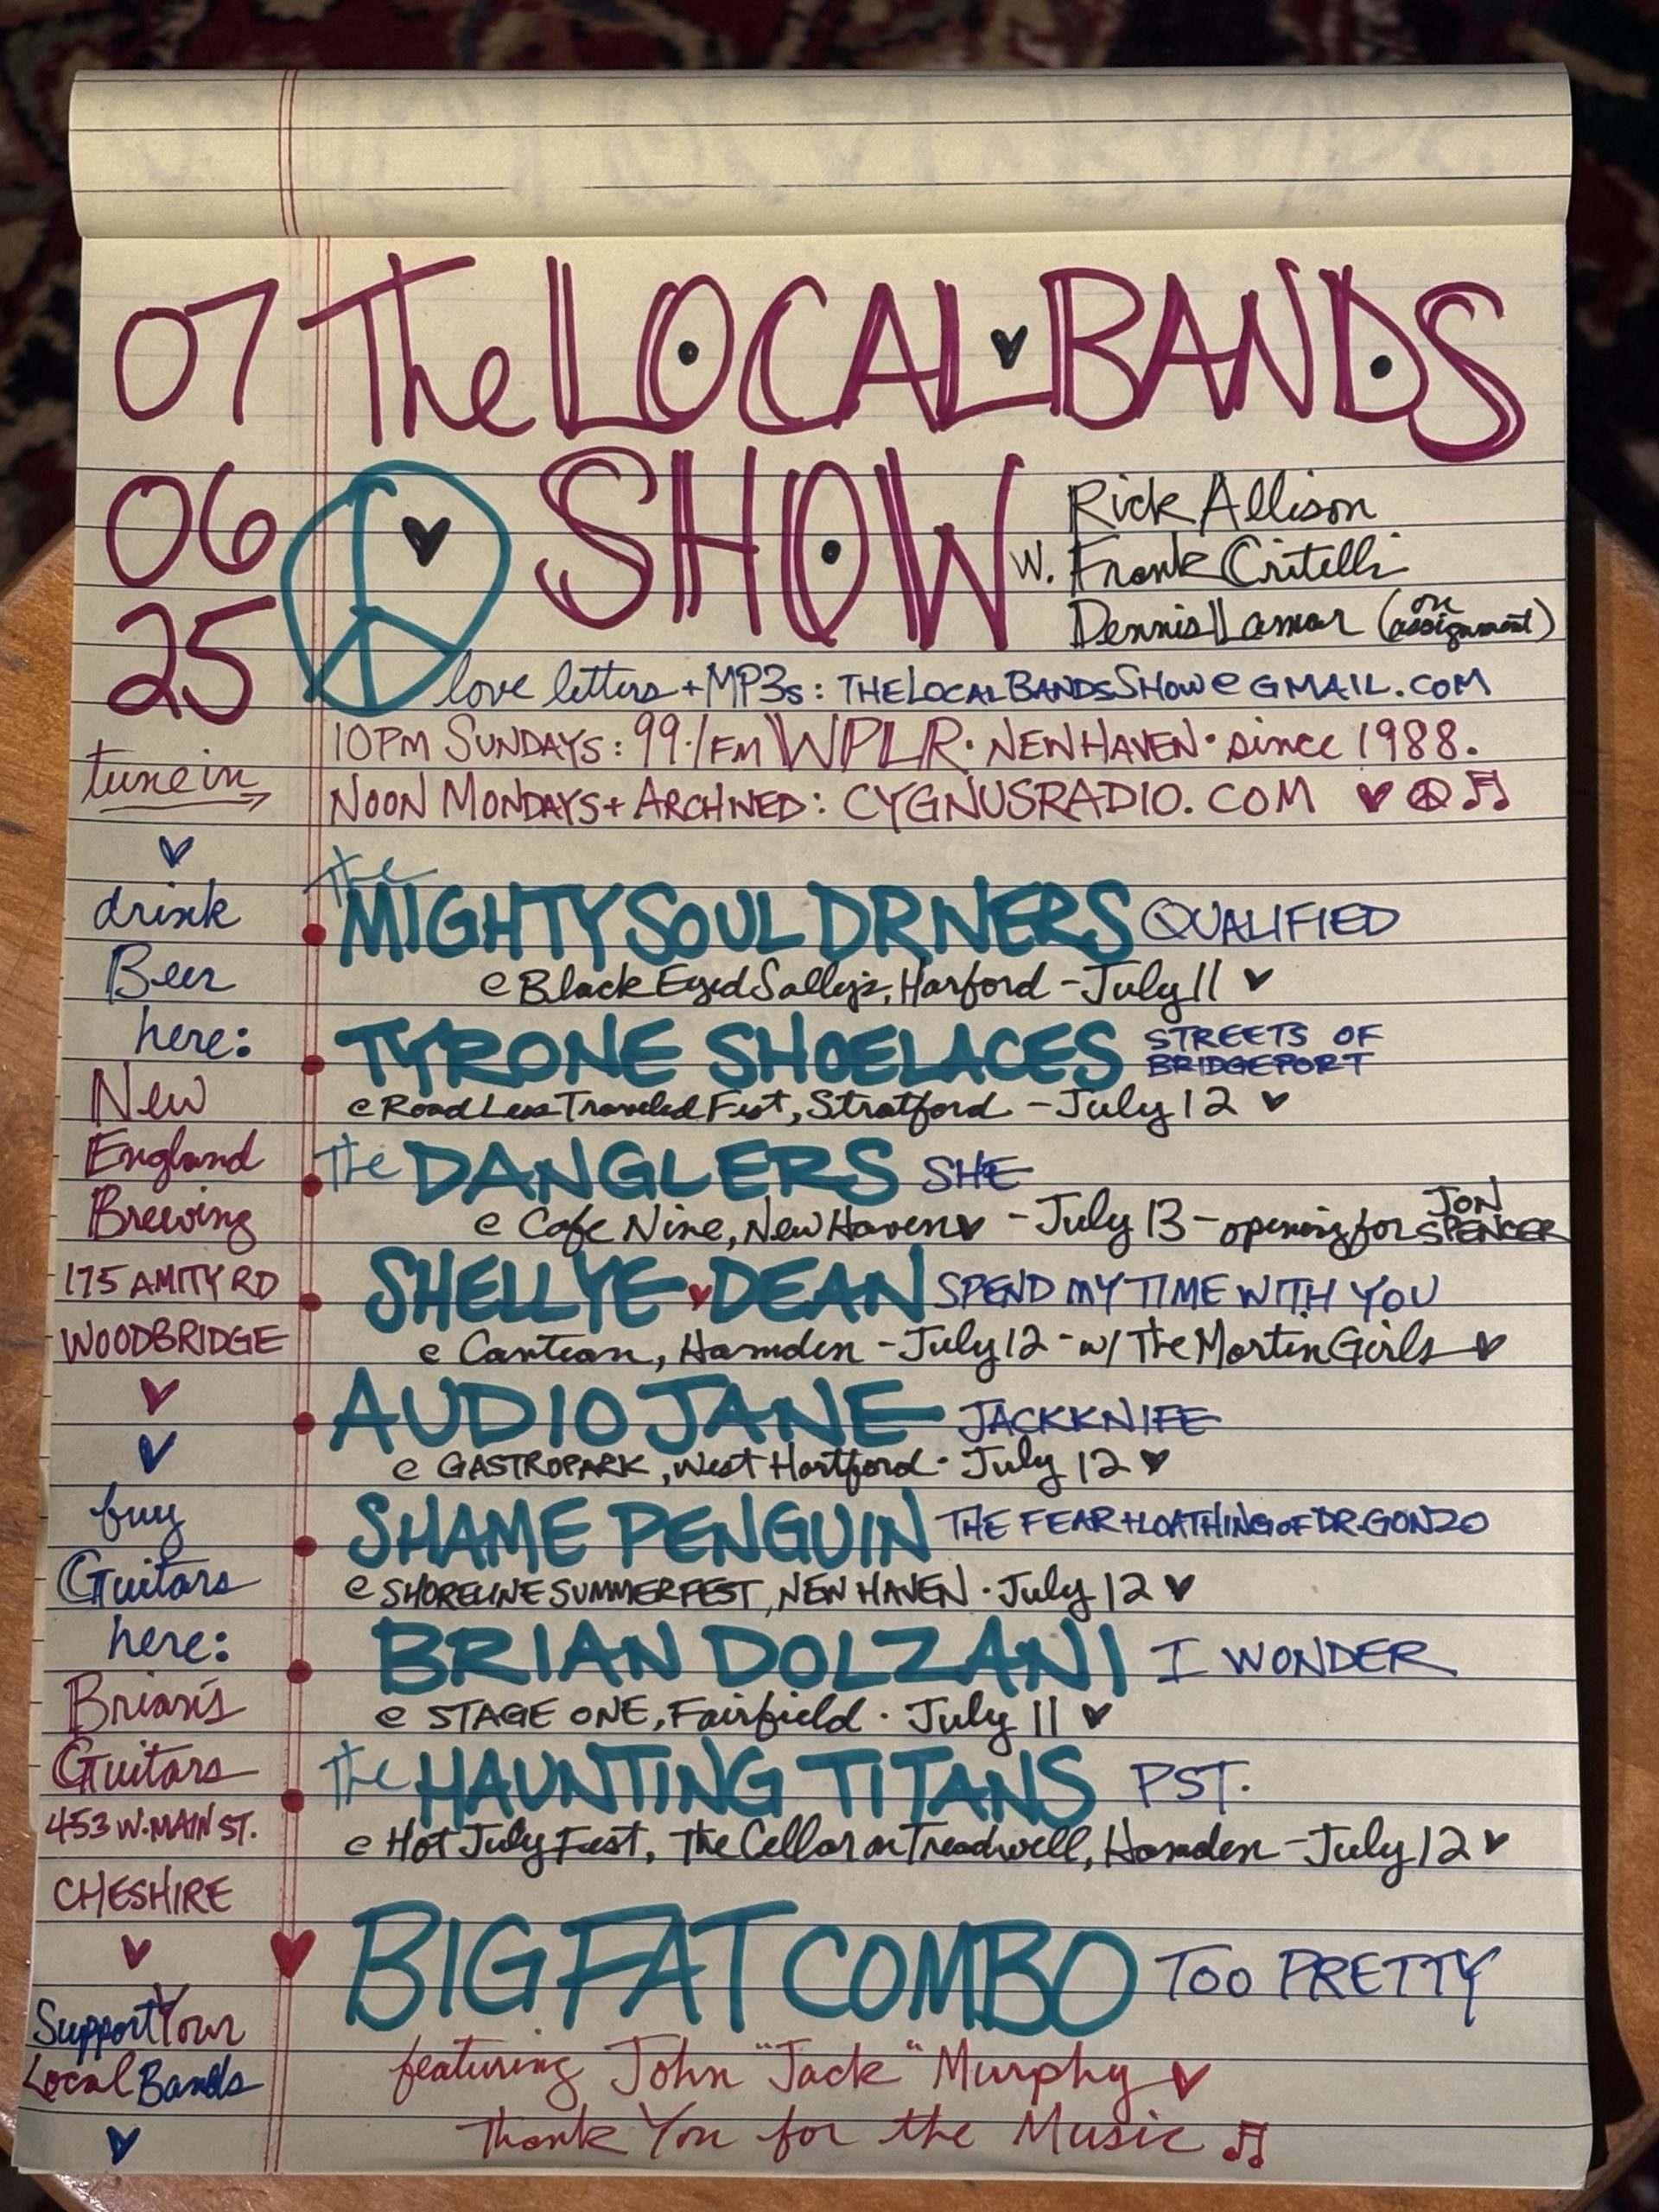 07
06
25
The LOCAL BANDS
SHOW
w. Rick Allison
Frank Critelli
Dennis Lamar (on assignment)
love letters + MP3s: THELOCALBANDSSHOW@GMAIL.COM
tune in
10PM SUNDAYS: 99.1FM WPLR · NEW HAVEN · since 1988.
NOON MONDAYS + ARCHIVED: CYGNUSRADIO.COM
drink
Beer
here:
New
England
Brewing
175 AMITY RD
WOODBRIDGE
buy
Guitars
here:
Brian's
Guitars
453 W. MAIN ST.
CHESHIRE
Support Your
Local Bands
The MIGHTY SOUL DRIVERS QUALIFIED
@ Black Eyed Sally's, Harford - July 11
TYRONE SHOELACES STREETS OF BRIDGEPORT
@ Road Less Traveled Fest, Stratford - July 12
The DANGLERS SHE
@ Cafe Nine, New Haven - July 13 - opening for JON SPENCER
SHELLYE DEAN SPEND MY TIME WITH YOU
@ Canteen, Hamden - July 12 - w/ The Martin Girls
AUDIO JANE JACKKNIFE
@ GASTROPARK, West Hartford · July 12
SHAME PENGUIN THE FEAR + LOATHING OF DR. GONZO
@ SHORELINE SUMMERFEST, NEW HAVEN · July 12
BRIAN DOLZANI I WONDER
@ STAGE ONE, Fairfield · July 11
The HAUNTING TITANS PST.
@ Hot July Fest, The Cellar on Treadwell, Hamden - July 12
BIG FAT COMBO TOO PRETTY
featuring John "Jack" Murphy
Thank You for the Music